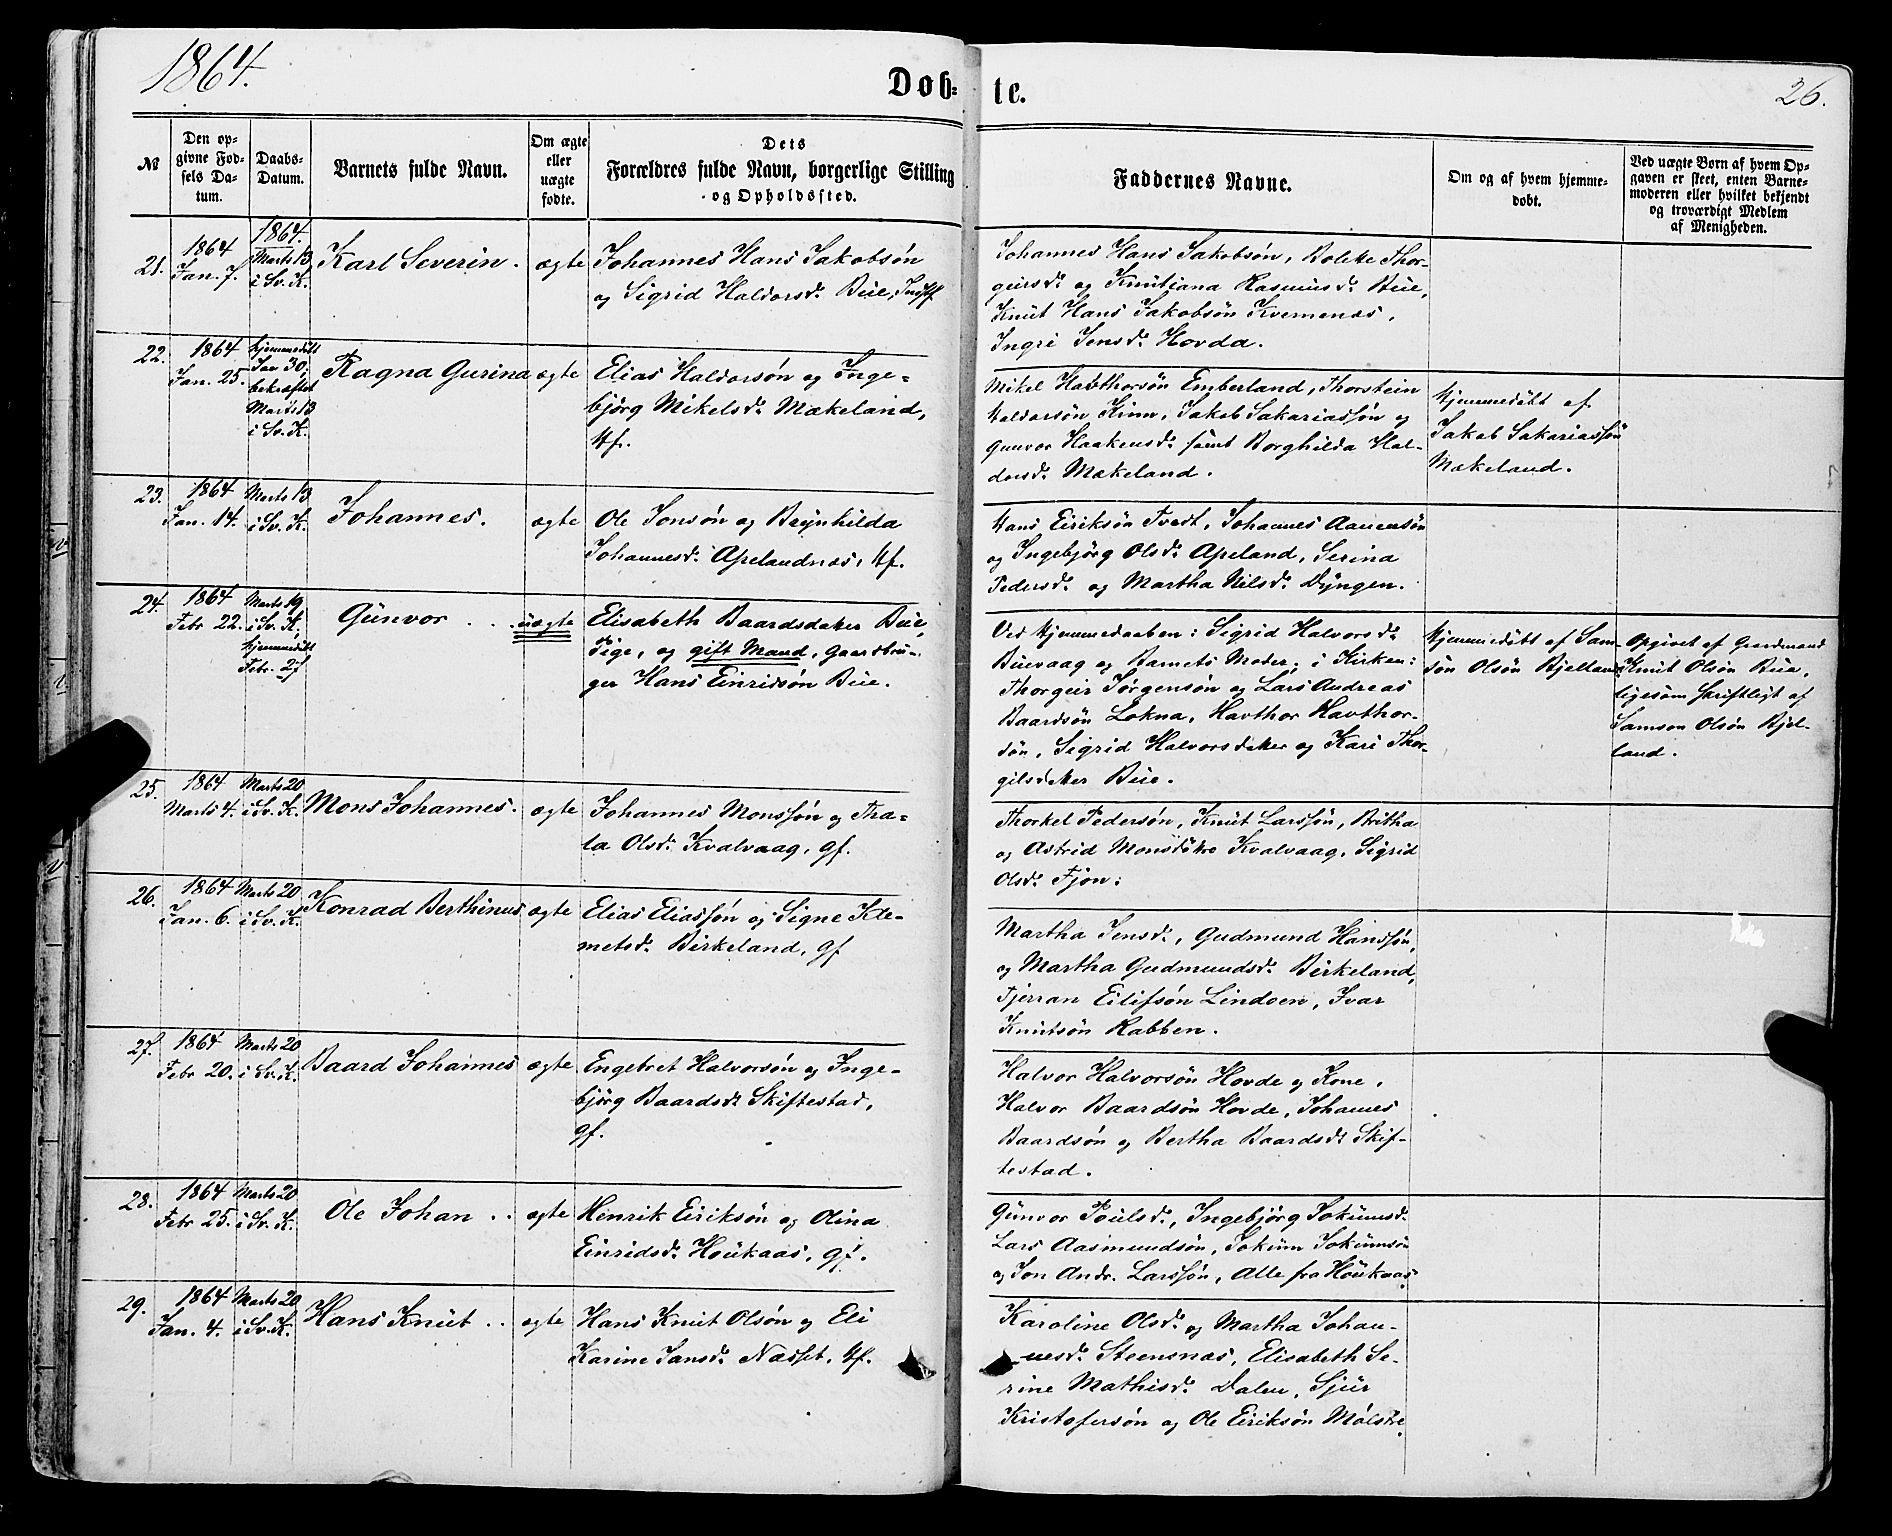 1864.
Døb=
te.
26.
№
Den op-
givne Fød-
sels Da-
tum.
Daabs-
Datum.
Barnets fulde Navn.
Om ægte
eller
uægte
fødte.
Dets
Forældres fulde Navn, borgerlige Stilling
og Opholdssted.
Faddernes Navne.
Om og af hvem hjemme-
døbt.
Ved uægte Børn af hvem Op-
gaven er skeet, enten Barne-
moderen eller hvilket bekjendt
og troværdigt Medlem
af Menigheden.
21.
1864
Jan. 7.
1864.
Marts 13
i Sv. K.
Karl Severin.
ægte
Johannes Hans Jakobsøn
og Sigrid Haldorsd. Bue,
Johannes Hans Jakobsøn, Boleke Thor-
geirsd. og Knutiana Rasmusd. Bue,
Knut Hans Jakobsøn Kvernenæs,
Ingri Jensd. Hovda.
22.
1864
Jan. 25.
Hjemmedøbt
Jan 30,
bekræftet
Marts 13
i Sv. K.
Ragna Gurina
ægte
Elias Haldorsøn og Inge=
bjørg Mikelsd. Mækeland,
Hf.
Mikel Havthorsøn Emberland, Thorstein
Haldorsøn Kinn, Jakob Sakariassøn og
Gunvor Haakensd. samt Borghilda Hal-
dorsd. Mækeland.
Hjemmedøbt af
Jakob Sakariassøn
Mækeland.
23.
1864
Jan. 14.
Marts 13
i Sv. K.
Johannes.
ægte
Ole Jonsøn og Brynhilda
Johannesd. Apelandnæs, Hf.
Hans Eiriksøn Tvedt, Johannes Aanensøn
og Ingebjørg Olsd. Apeland, Serina
Pedersd. og Martha Nilsd. Dyngen.
24.
1864
Febr 22.
Marts 19
i Sv. K,
hjemmedøbt
Febr. 27
Gunvor . . .
uægte
Elisabeth Baardsdaker Bue,
Pige, og gift Mand, Gaardbru-
ger Hans Einridsøn Bue.
Ved Hjemmedaaben: Sigrid Halvorsd.
Buevaag og Barnets Moder; i Kirken:
Thorgeir Jørgensøn og Lars Andreas
Baardsøn Lokna, Havthor Havthor-
søn, Sigrid Halvorsdaker og Kari Thor-
gilsdaker Bue.
Hjemmedøbt af Sam-
søn Olsøn Bjelland
Opgivet af Gaardmand
Knut Olsøn Bue,
ligesom skriftligt af
Samson Olsøn Bjel-
land.
25.
1864
Marts 4.
Marts 20
i Sv. K.
Mons Johannes.
ægte
Johannes Monssøn og Tha=
la Olsd. Kvalvaag, gf.
Thorkel Pedersøn, Knut Larssøn, Britha
og Astrid Monsdøtre Kvalvaag, Sigrid
Olsd. Fjon:
26.
1864
Jan. 6.
Marts 20
i Sv. K.
Konrad Berthinus
ægte
Elias Eliassøn og Signe Kle-
metsd. Birkeland, gf
Martha Jensd., Gudmund Hanssøn,
og Martha Gudmundsd. Birkeland,
Fjerran Eilifsøn Lindøen, Ivar
Knutsøn Rabben.
27.
1864
Febr 20.
Marts 20
i Sv. K.
Baard Johannes
ægte
Engebret Halvorsøn og Inge-
bjørg Baardsd. Skiftestad,
gf.
Halvor Halvorsøn Hovde og Kone,
Halvor Baardsøn Hovde, Johannes
Baardsøn og Bertha Baardsd. Skif-
testad.
28.
1864
Febr 25.
Marts 20
i Sv. K.
Ole Johan . .
ægte
Henrik Eiriksøn og Olina
Einridsd. Houkaas, gf.
Gunvor Poulsd., Ingebjørg Jokumsd.
Lars Aasmundsøn, Jokum Jokumsøn
og Jon Andr. Larssøn, Alle fra Houkaas.
29.
1864
Jan. 4.
Marts 20
i Sv. K.
Hans Knut . .
ægte
Hans Knut Olsøn og Eli
Karine Jansd. Næsset, Hf.
Karoline Olsd. og Martha Johan-
nesd. Steensnæs, Elisabeth Se-
rine Mathisd. Dalen, Sjur
Kristofersøn og Ole Eiriksøn Mølstre.